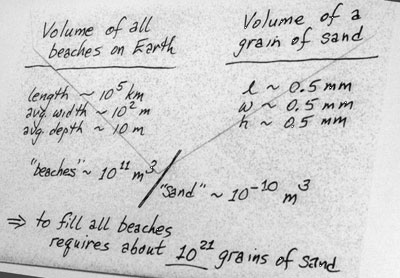 Volume of all
beaches on Earth
length ~ 10⁵ km
avg. width ~ 10² m
avg. depth ~ 10 m
"beaches" ~ 10¹¹ m³
Volume of a
grain of sand
l ~ 0.5 mm
w ~ 0.5 mm
h ~ 0.5 mm
"sand" ~ 10⁻¹⁰ m³
⇒ to fill all beaches
requires about 10²¹ grains of sand